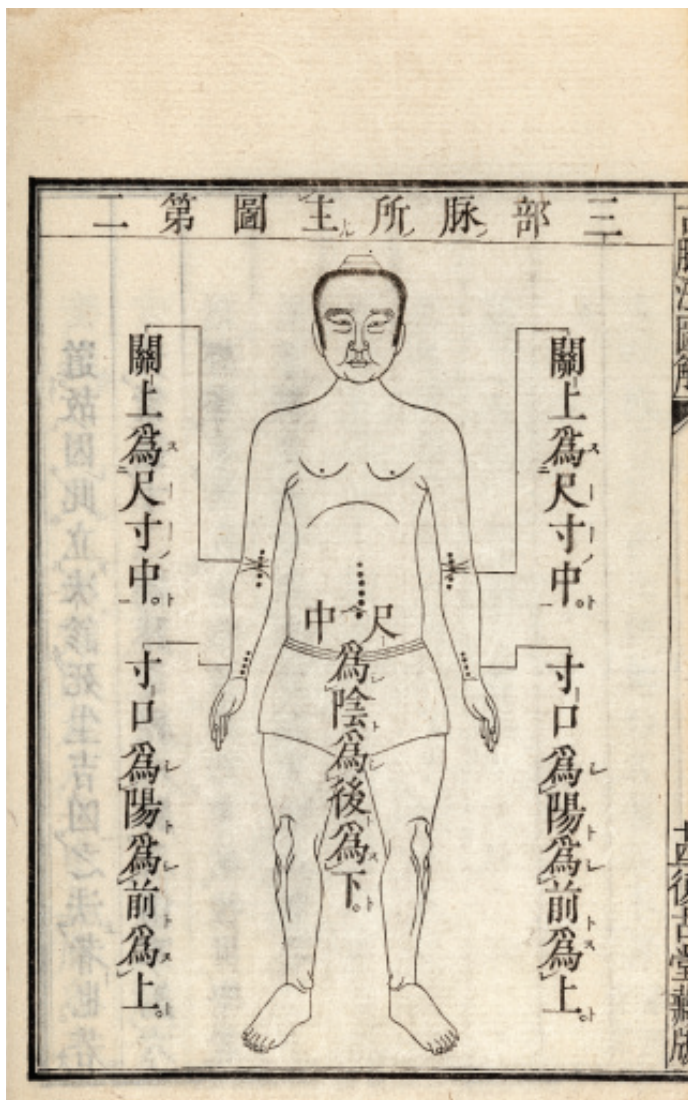 三部脉所主圖第二
關上爲尺寸中。
寸口爲陽爲前爲上。
尺中
爲陰爲後爲下。
關上爲尺寸中。
寸口爲陽爲前爲上。
復古堂藏版